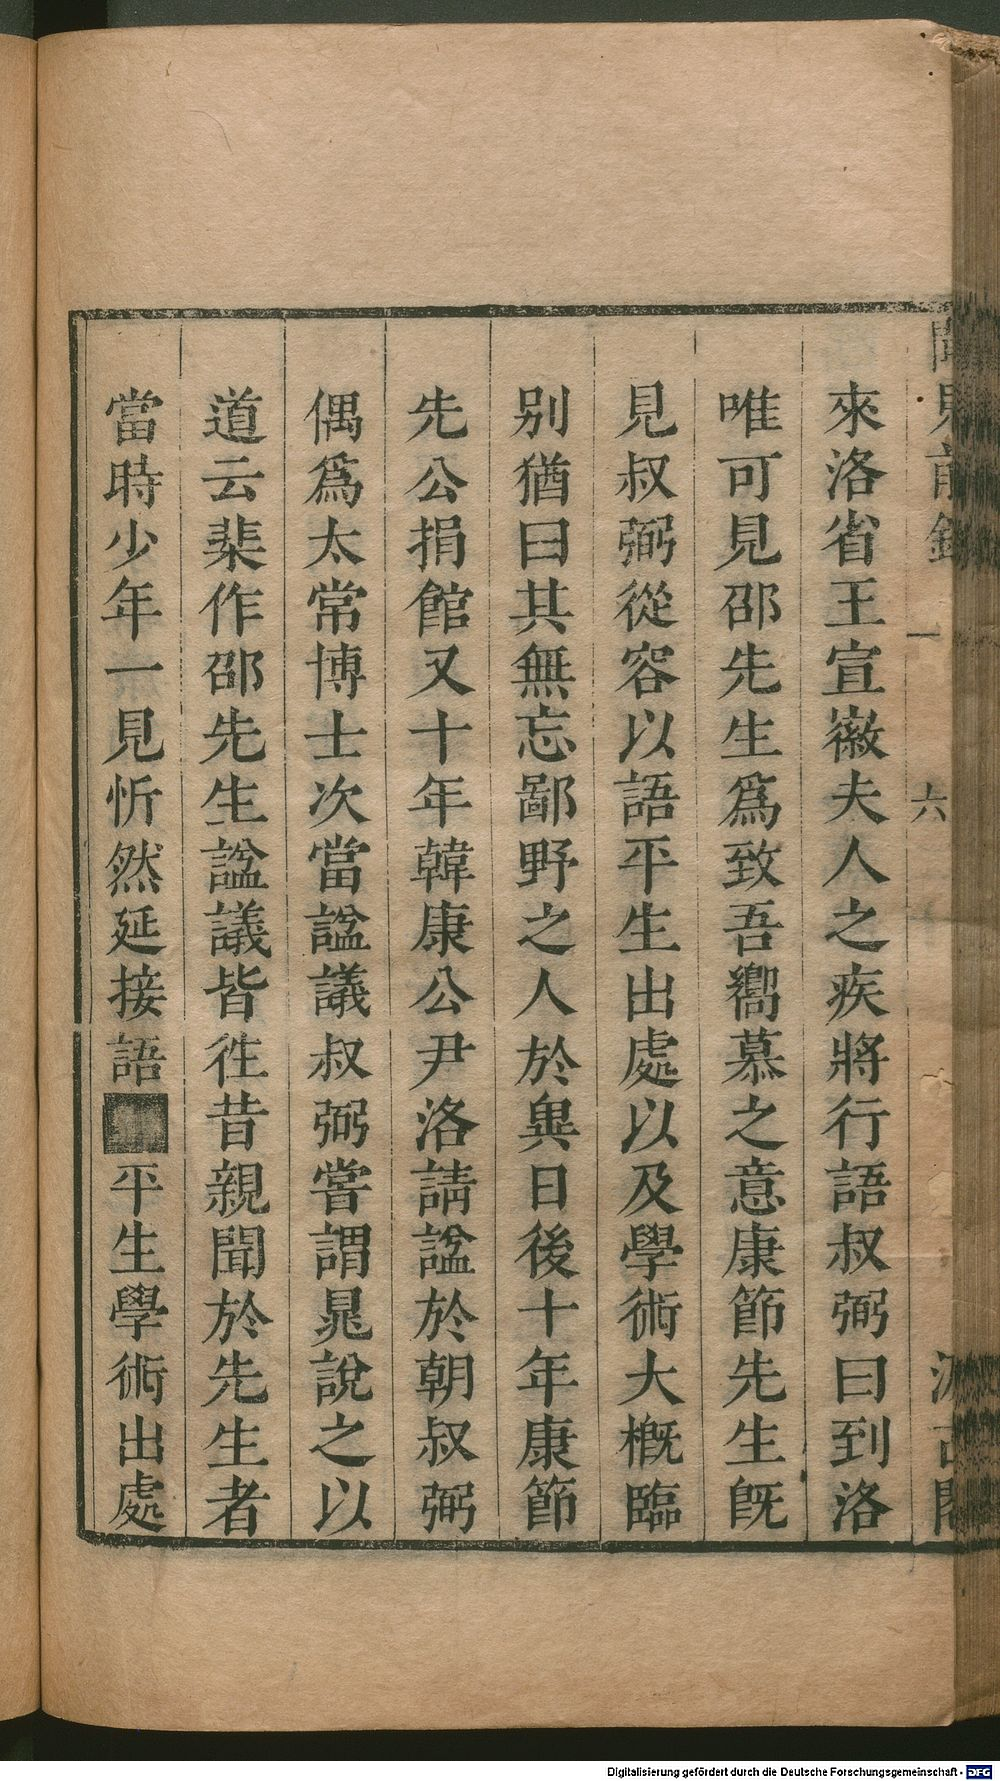 來洛省王宣徽夫人之疾將行語叔弼曰到洛
唯可見邵先生爲致吾嚮慕之意康節先生旣
見叔弼從容以語平生出處以及學術大槪臨
别猶曰其無忘鄙野之人於異日後十年康節
先公捐館又十年韓康公尹洛請謚於朝叔弼
偶爲太常博士次當謚議叔弼嘗謂晁說之以
道云棐作邵先生謚議皆徃昔親聞於先生者
當時少年一見忻然延接語平生學術出處
六
Digitalisierung gefördert durch die Deutsche Forschungsgemeinschaft - DFG